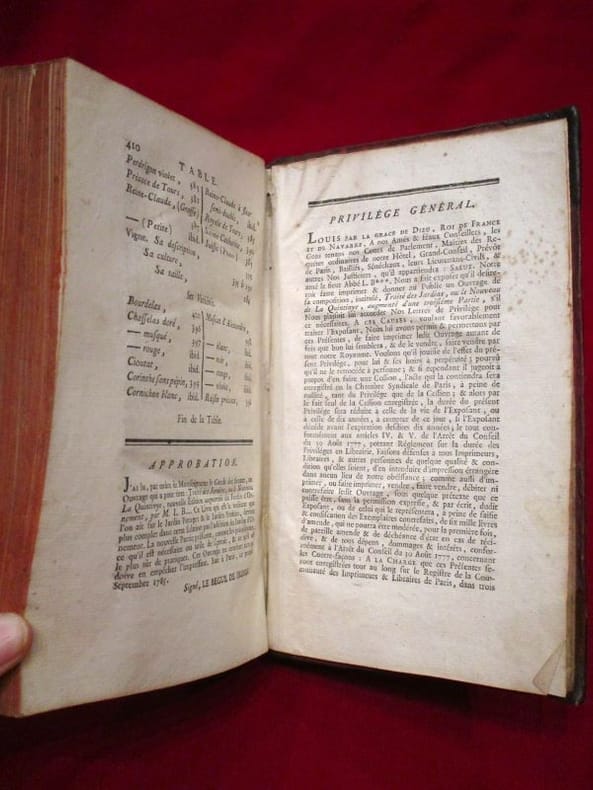 410
TABLE.
Perdrigon violet, 383
Prince de Tours, 381
Reine-Claude, (Grosse)
— (Petite) ibid.
Vigne. Sa description,
Sa culture,
Sa taille,
Reine-Claude à fleur
semi-double, ibid.
Royale de Tours, 385
Sainte Catherine,
Suisse (Prune)
Ses Variétés.
Bourdelas, 402
Chasselas doré, 396
— musqué, 397
— rouge, ibid.
Cioutat, ibid.
Corinthe sans pepin, 394
Cornichon blanc, ibid.
Muscat d'Alexandrie,
— blanc, ibid.
— noir, ibid.
— rouge, ibid.
— violet, ibid.
Raisin précoce, 396
Fin de la Table.
APPROBATION.
J'ai lu, par ordre de Monseigneur le Garde des Sceaux, un
Ouvrage qui a pour titre: Traité des Jardins, ou le Nouveau
La Quintinye, nouvelle Édition augmentée du Jardin d'Or-
nement, par M. L. B...
l'on ait sur le Jardin Potager & le Jardin Fruitier,
plus complet dans cette Edition
nement. La nouvelle Partie présente,
ce qu'il est nécessaire ou utile de savoir, & ce qu'il est
le plus sûr de pratiquer. Cet Ouvrage ne contient rien qui
doive en empêcher l'impression. Fait à Paris, ce
Septembre 1785.
Signé, LE BEGUE DE PRESLE.
PRIVILÈGE GÉNÉRAL.
LOUIS PAR LA GRACE DE DIEU, ROI DE FRANCE
ET DE NAVARRE, A nos Amés & féaux Conseillers, les
Gens tenans nos Cours de Parlement, Maîtres des Re-
quêtes ordinaires de notre Hôtel, Grand-Conseil, Prévôt
de Paris, Baillifs, Sénéchaux, leurs Lieutenans-Civils, &
autres Nos Justiciers, qu'il appartiendra: SALUT. Notre
amé le sieur Abbé L. B*** Nous a fait exposer qu'il desire-
roit faire imprimer & donner au Public un Ouvrage de
sa composition, intitulé, Traité des Jardins, ou le Nouveau
de La Quintinye, augmenté d'une troisième Partie, s'il
Nous plaisoit lui accorder Nos Lettres de Privilége pour
ce nécessaires. A CES CAUSES, voulant favorablement
traiter l'Exposant, Nous lui avons permis & permettons par
ces Présentes, de faire imprimer ledit Ouvrage autant de
fois que bon lui semblera, & de le vendre, faire vendre par
tout notre Royaume. Voulons qu'il jouisse de l'effet du pré-
sent Privilége, pour lui & ses hoirs à perpétuité; pourvû
qu'il ne le retrocède à personne; & si cependant il jugeoit à
propos d'en faire une Cession, l'acte qui la contiendra sera
enregistré en la Chambre Syndicale de Paris, à peine de
nullité, tant du Privilége que de la Cession; & alors par
le fait seul de la Cession enregistrée, la durée du présent
Privilége sera réduite à celle de la vie de l'Exposant, ou
à celle de dix années, à compter de ce jour, si l'Exposant
décéde avant l'expiration desdites dix années, le tout con-
formément aux articles IV. & V. de l'Arrêt du Conseil
du 30 Août 1777, portant Réglement sur la durée des
Priviléges en Librairie, Faisons défenses à tous Imprimeurs,
Libraires, & autres personnes de quelque qualité & con-
dition qu'elles soient, d'en introduire d'impression étrangère
dans aucun lieu de notre obéissance; comme aussi d'im-
primer, ou faire imprimer, vendre, faire vendre, débiter ni
contrefaire ledit Ouvrage, sous quelque prétexte que ce
puisse être, sans la permission expresse, & par écrit, dudit
Exposant, ou de celui qui le représentera, à peine de saisie
& confiscation des Exemplaires contrefaits, de six mille livres
d'amende, qui ne pourra être modérée, pour la première fois,
de pareille amende & de déchéance d'état en cas de réci-
dive, & de tous dépens, dommages & intérêts, confor-
mément à l'Arrêt du Conseil du 30 Août 1777, concernant
les Contre-façons: A LA CHARGE que ces Présentes se-
ront enregistrées tout au long sur le Registre de la Com-
munauté des Imprimeurs & Libraires de Paris, dans trois